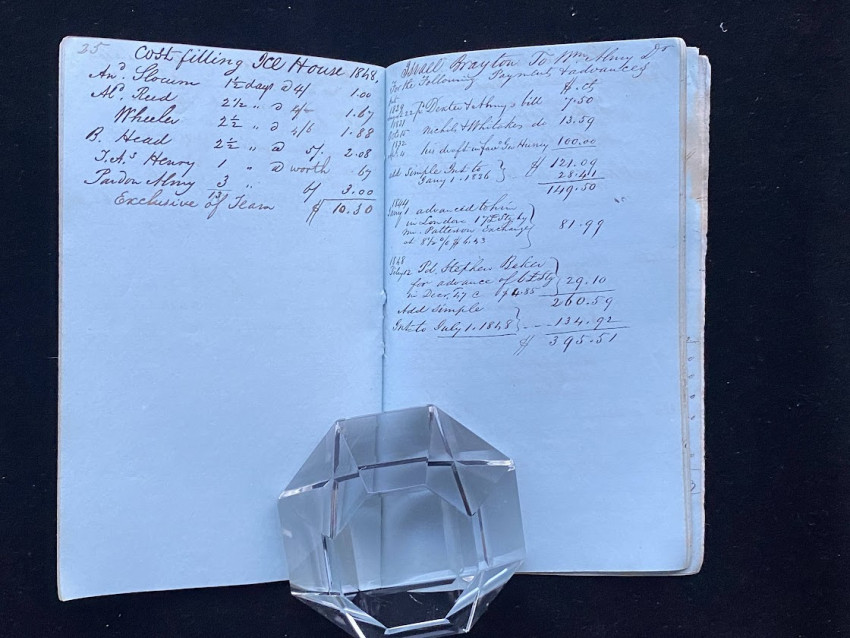 25
Cost filling Ice House 1848,
And. Slocum 1½ days @ 4/ 1.00
Al. Reed 2½ " @ 4/ 1.67
Wheeler 2½ " @ 4/6 1.88
B. Head 2½ " @ 5/ 2.08
Henry 1 " @ worth .67
Pardon Almy 3 " 6/ 3.00
13
Exclusive of Team $ 10.30
Israel Brayton To Wm Almy Dr
For the Following Payments & advances
$. cts
1829 Dexter & Almy's bill 7.50
1831 Nichols & Whitakers do 13.59
1832 his draft in favr Henry 100.00
$ 121.09
Add Simple Int. to
Jany 1. 1836 28.41
149.50
1844
Jany 1 advanced to him
in London 17£ Stg by
Mr. Patterson Exchange
at 8½ % $ 4.83 81.99
1848
Pd. Stephen Baker
for advance of 6 £ Stg
in Decr. 47 @ $4.85 29.10
260.59
Add Simple
Int to July 1. 1848 134.92
$ 395.51